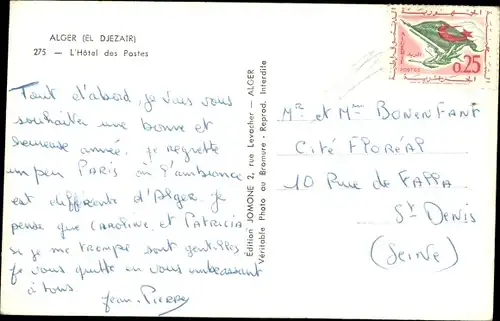 ALGER (EL DJEZAIR)
275 — L'Hôtel des Postes
Tout d'abord, je vais vous
souhaiter une bonne et
heureuse année. je regrette
un peu PARIS où l'ambiance
est différente d'Alger. Je
pense que CAROLINE et PATRICIA
si je me trompe sont gentilles
je vous quitte en vous embrassant
à tous.
Jean-Pierre
Edition JOMONE 2, rue Levacher - ALGER
Véritable Photo au Bromure - Reprod. Interdite
POSTES
0,25
Mr et Mme BONENFANT
Cité FLORÉAL
10 Rue de FALLA
St DENIS
(SEINE)